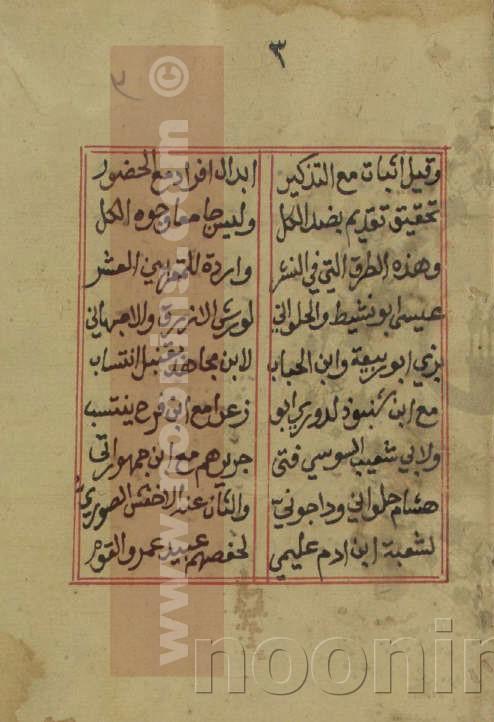 ٣
وقيل اثبات مع التذكير ابدال افراد مع الحضور
تحقيق تقديم بضد الكل وليس جامعا وجوه الكل
وهذه الطرق التي في النشر واردة للقراء العشر
عيسى ابو نشيط والحلواني لورش الازرق والاصبهاني
بزي ابو ربيعة وابن الحباب لابن مجاهد قنبل انتساب
مع ابن شنبوذ لدوري ابو زعرا مع ابن فرح ينتسب
ولابي شعيب السوسي فتى جريرهم مع ابن جمهور اتى
هشام حلواني وداجوني والثان عند الاخفش الصوري
لشعبة ابن ادم عليمي لحفصهم عبيد عمرو القوم
www.noorlib
©
noonin